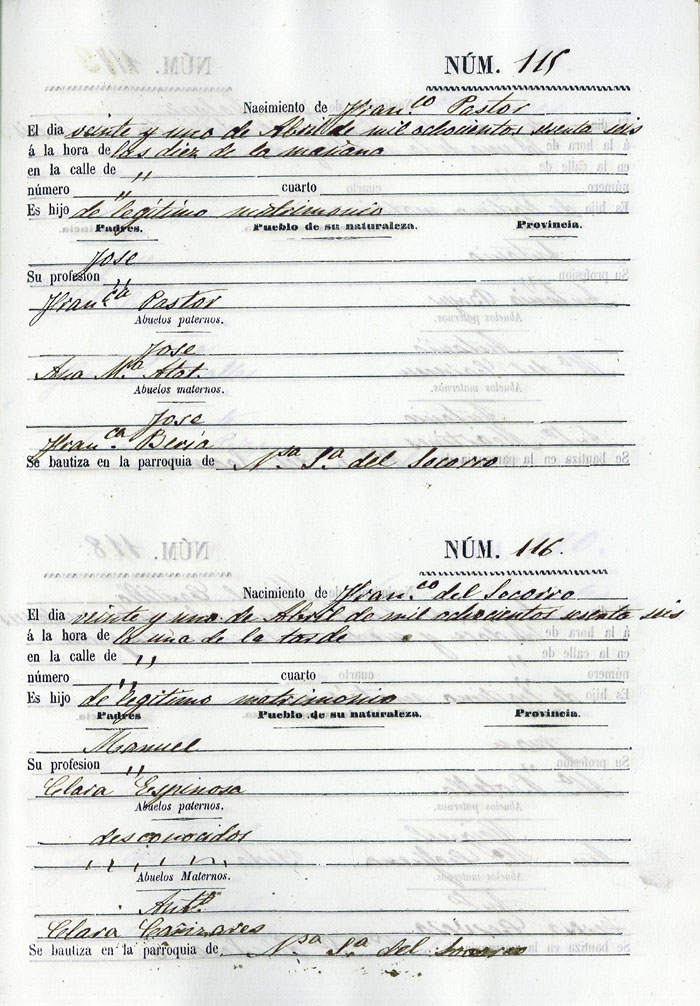 NÚM. 115
Nacimiento de Franco Pastor
El dia veinte y uno de Abril de mil ochocientos sesenta seis
á la hora de las diez de la mañana
en la calle de ,,
número ,, cuarto
Es hijo de legítimo matrimonio
Padres. Pueblo de su naturaleza. Provincia.
Jose
Su profesion ,,
Franca Pastor
Abuelos paternos.
Jose
Ana Ma Alot.
Abuelos maternos.
Jose
Franca
Se bautiza en la parroquia de Nsa Sa del Socorro
NÚM. 116.
Nacimiento de Franco del Socorro
El dia veinte y uno de Abril de mil ochocientos sesenta seis
á la hora de la una de la tarde
en la calle de ,,
número ,, cuarto
Es hijo de legitimo matrimonio
Padres Pueblo de su naturaleza. Provincia.
Manuel
Su profesion ,,
Clara Espinosa
Abuelos paternos.
desconocidos
, , , , , ,
Abuelos Maternos.
Anto
Clara Cañizares
Se bautiza en la parroquia de Nsa Sa del Socorro